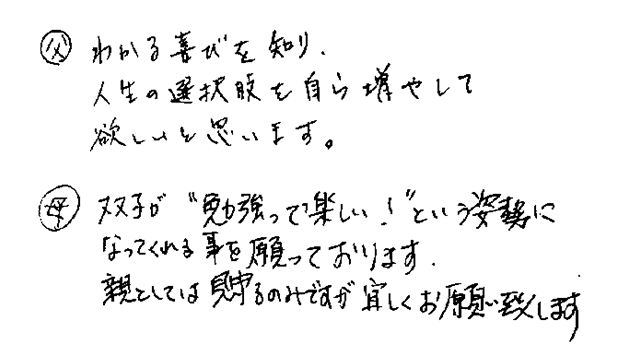 父 わかる喜びを知り、
人生の選択肢を自ら増やして
欲しいと思います。
母 双子が“勉強って楽しい!”という姿勢に
なってくれる事を願っております.
親としては見守るのみですが宜しくお願い致します